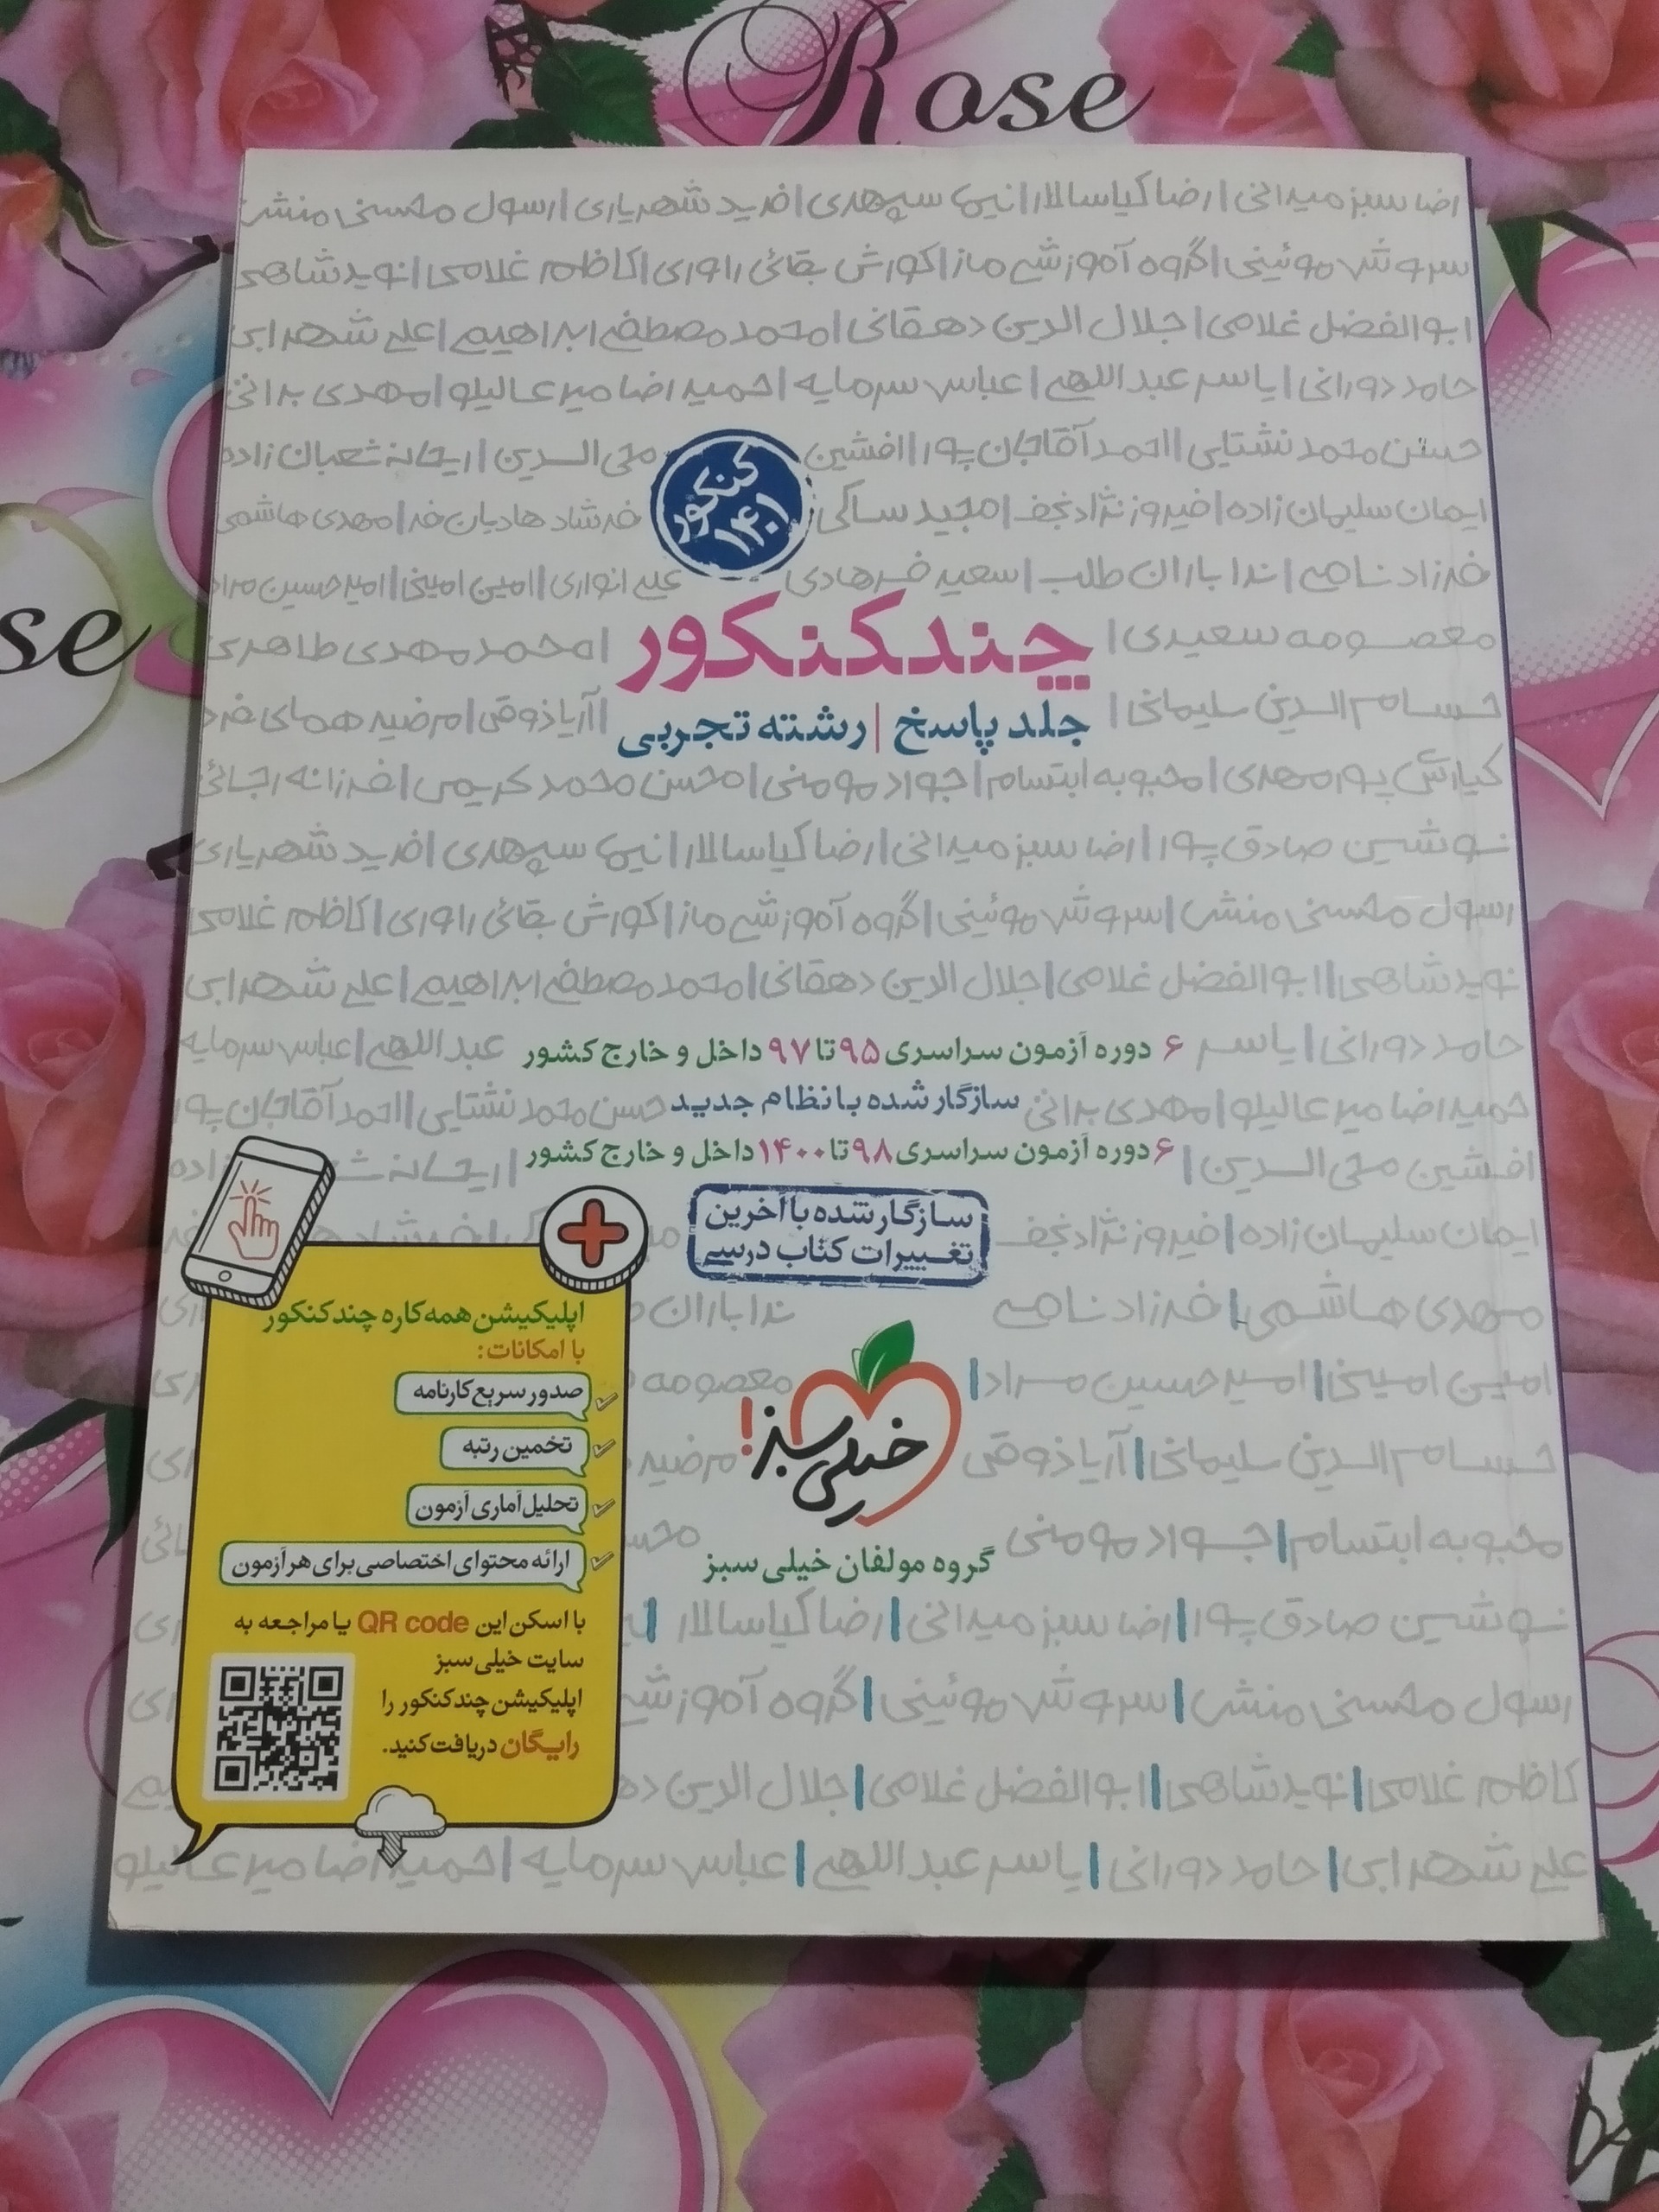 Rose
رضا سبزمیدانی | رضا کیاسالار | نیما سپهری | فرید شهریاری | رسول محسنی منش
سروش موئینی | گروه آموزشی ماز | کورش بقائی راوری | کاظم غلامی | نوید شاهی
ابوالفضل غلامی | جلال الدین دهقانی | محمد مصطفی ابراهیم | علی شهرابی
حامد دورانی | یاسر عبداللهی | عباس سرمایه | حمیدرضا میرعالیلو | مهدی براتی
حسن محمد نشتایی | احمد آقاجان پور | افشین محی الدین | ریحانه شعبان زاده
کنکور
۱۴۰۱
ایمان سلیمان زاده | فیروز نژادنجف | مجید ساکی فرشاد هادیان فر | مهدی هاشمی
فرزاد نامی | ندا باران طلب | سعید فرهادی علی انواری | امین امینی | امیرحسین مراد
se
معصومه سعیدی | چندکنکور | محمدمهدی طاهری
حسام الدین سلیمانی | جلد پاسخ | رشته تجربی | آریا ذوقی | مرضیه همای فرد
کیارش پورمهدی | محبوبه ابتسام | جواد مومنی | محسن محمدکریمی | فرزانه رجائی
نوشین صادق پور | رضا سبزمیدانی | رضا کیاسالار | نیما سپهری | فرید شهریاری
رسول محسنی منش | سروش موئینی | گروه آموزشی ماز | کورش بقائی راوری | کاظم غلامی
نوید شاهی | ابوالفضل غلامی | جلال الدین دهقانی | محمد مصطفی ابراهیم | علی شهرابی
حامد دورانی | یاسر عبداللهی | عباس سرمایه
۶ دوره آزمون سراسری ۹۵ تا ۹۷ داخل و خارج کشور
حمیدرضا میرعالیلو | مهدی براتی حسن محمد نشتایی | احمد آقاجان پور
سازگار شده با نظام جدید
افشین محی الدین | ریحانه
۶ دوره آزمون سراسری ۹۸ تا ۱۴۰۰ داخل و خارج کشور
ایمان سلیمان زاده | فیروز نژادنجف
سازگار شده با آخرین
تغییرات کتاب درسی
مهدی هاشمی | فرزاد نامی ندا باران
امین امینی | امیرحسین مراد | معصومه
حسام الدین سلیمانی | آریا ذوقی مرضیه
خیلی سبز!
محبوبه ابتسام | جواد مومنی
گروه مولفان خیلی سبز
نوشین صادق پور | رضا سبزمیدانی | رضا کیاسالار |
رسول محسنی منش | سروش موئینی | گروه آموزشی
کاظم غلامی | نوید شاهی | ابوالفضل غلامی | جلال الدین
علی شهرابی | حامد دورانی | یاسر عبداللهی | عباس سرمایه | حمیدرضا میرعالیلو
اپلیکیشن همه‌کاره چندکنکور
با امکانات:
صدور سریع کارنامه
تخمین رتبه
تحلیل آماری آزمون
ارائه محتوای اختصاصی برای هر آزمون
با اسکن این QR code یا مراجعه به
سایت خیلی سبز
اپلیکیشن چندکنکور را
رایگان دریافت کنید.